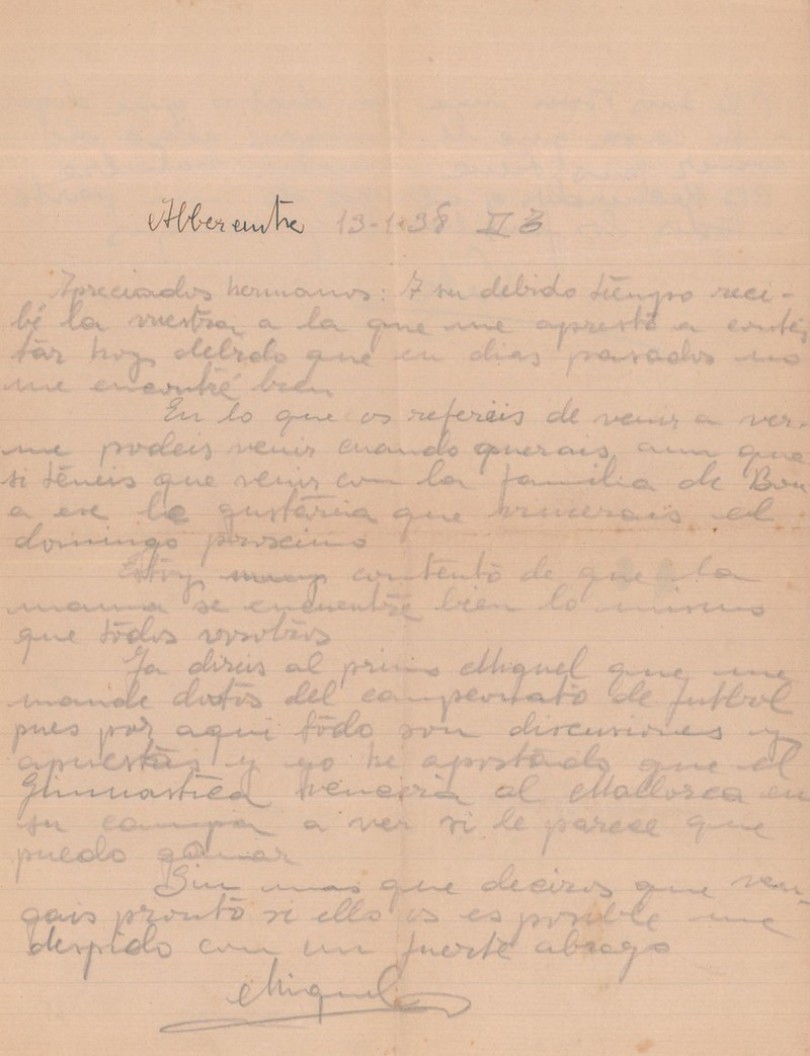 Alberente 13-1-38 II
Apreciados hermanos: A su debido tiempo reci-
bé la vuestra a la que me apresto a contes
tar hoy debido que en dias pasados no
me encontré bien
En lo que os refereis de venir a ver-
me podeis venir cuando querais, aun que
si teneis que venir con la familia de Bou
a ese le gustaria que vinierais el
domingo proximo
Estoy muy contento de que la
mama se encuentre bien lo mismo
que todos vosotros
Ja direis al primo Miquel que me
mande datos del campeonato de futbol
pues por aqui todo son discusiones y
apuestas y yo he apostado que el
Gimnastica venceria al Mallorca en
su campo a ver si le parece que
puedo ganar
Sin mas que deciros que ven-
gais pronto si ello os es posible me
despido con un fuerte abrazo
Miquel